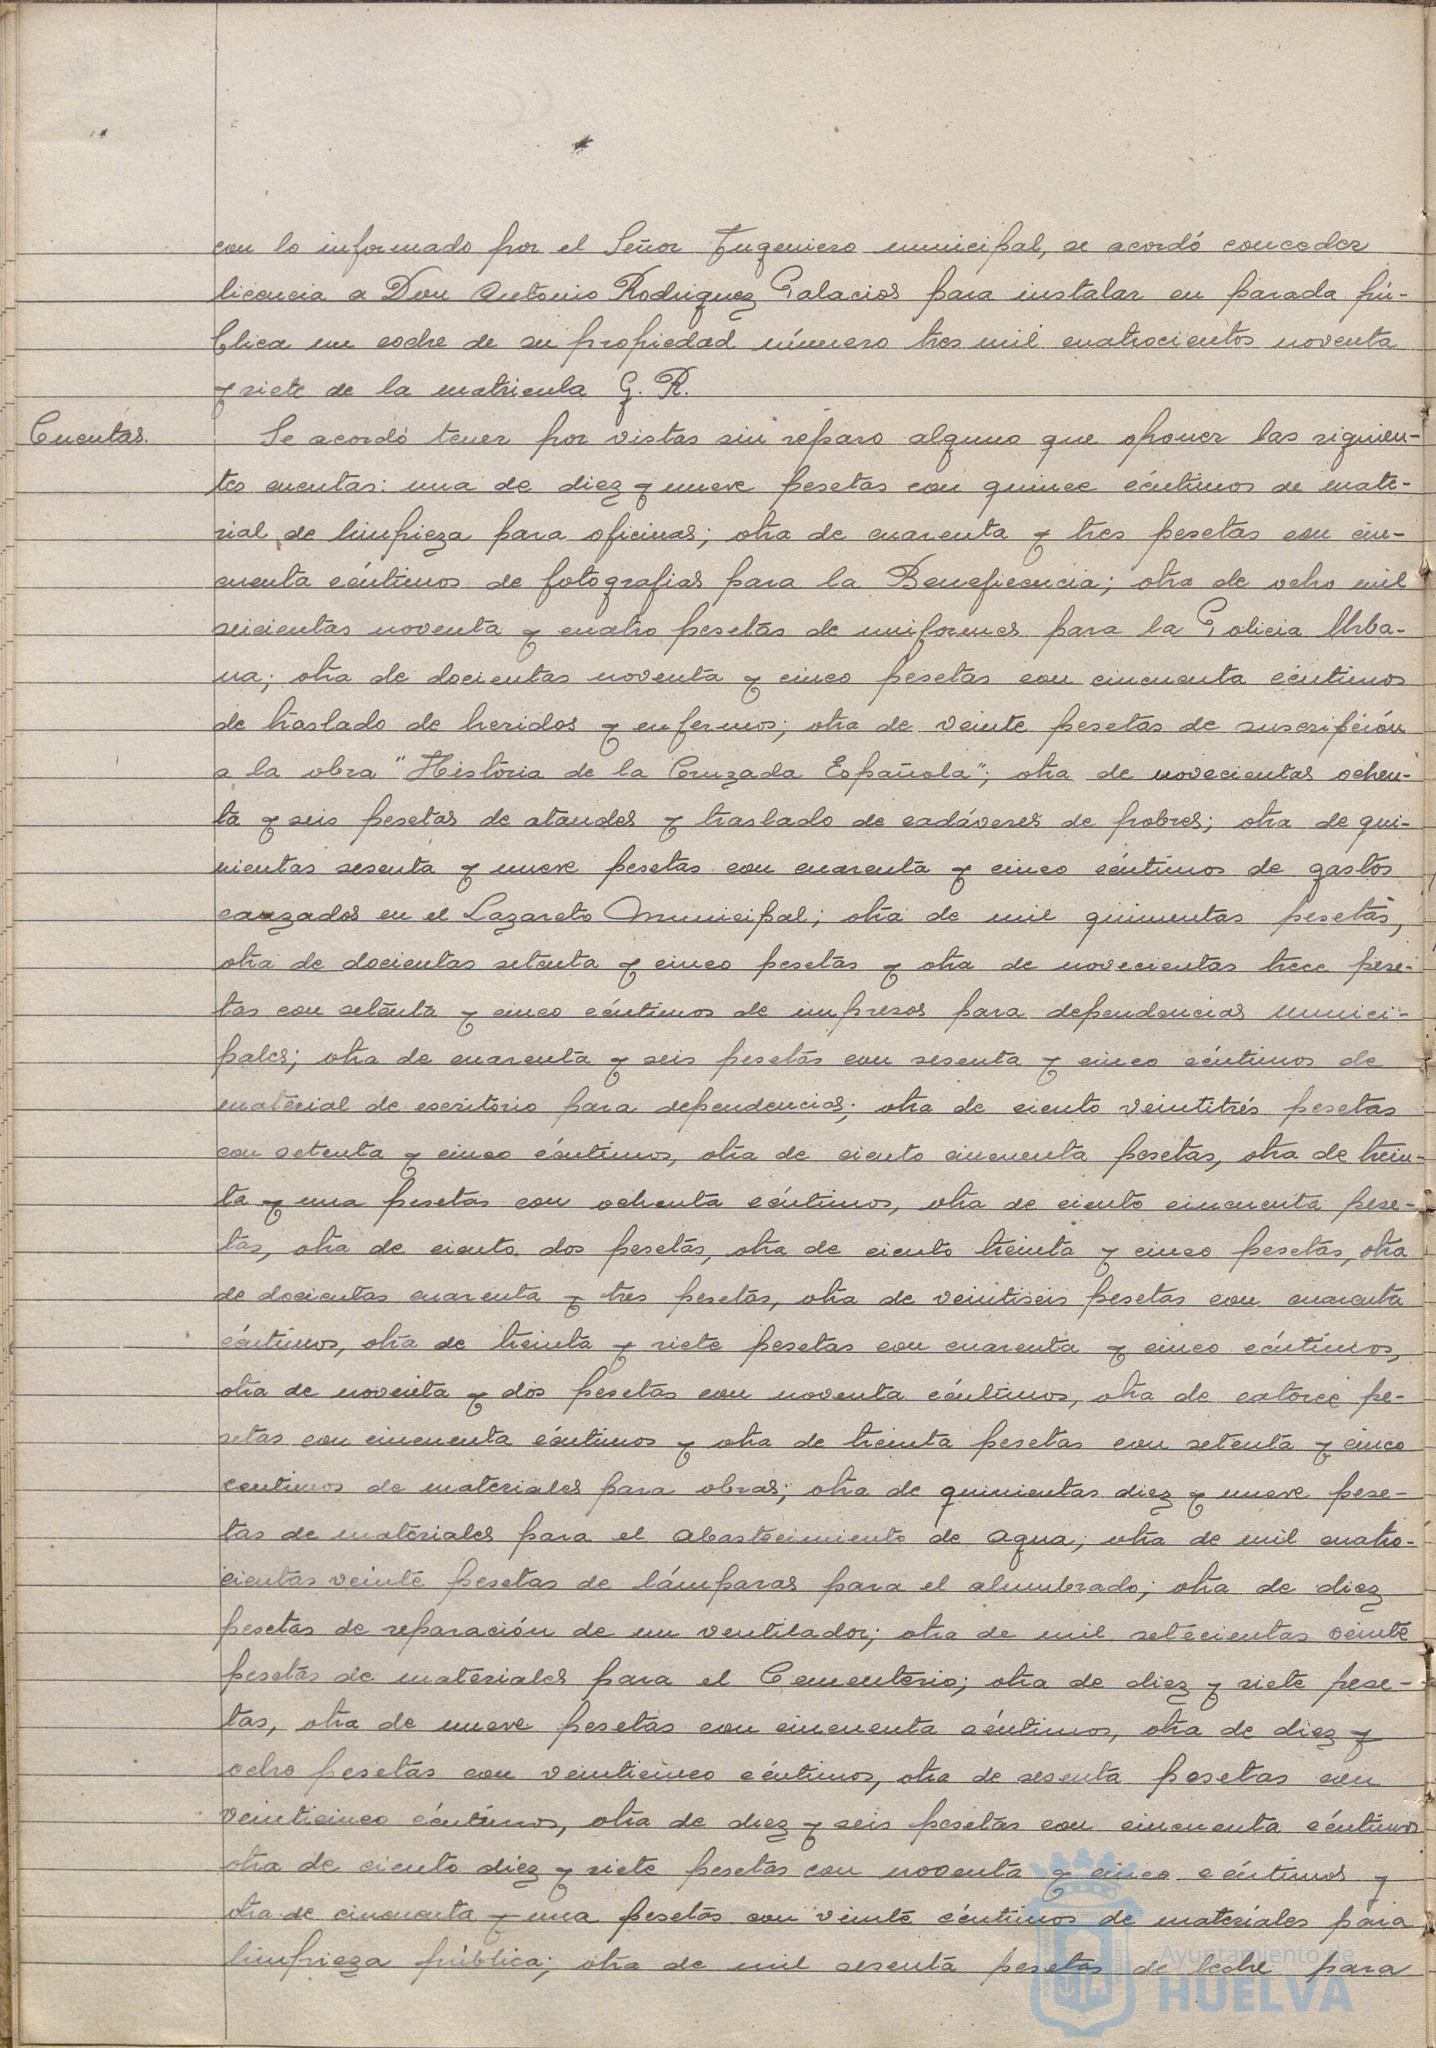 con lo informado por el Señor Ingeniero municipal, se acordó conceder
licencia a Don Antonio Rodriguez Palacios para instalar en parada pú-
blica un coche de su propiedad número tres mil cuatrocientos noventa
y siete de la matricula G. R.
Cuentas.
Se acordó tener por vistas sin reparo alguno que oponer las siguien-
tes cuentas: una de diez y nueve pesetas con quince céntimos de mate-
rial de limpieza para oficinas; otra de cuarenta y tres pesetas con cin-
cuenta céntimos de fotografias para la Beneficencia; otra de ocho mil
seicientas noventa y cuatro pesetas de uniformes para la Policia Urba-
na; otra de docientas noventa y cinco pesetas con cincuenta céntimos
de traslado de heridos y enfermos; otra de veinte pesetas de suscripción
a la obra "História de la Cruzada Española"; otra de novecientas ochen-
ta y seis pesetas de ataudes y traslado de cadáveres de pobres; otra de qui-
nientas sesenta y nueve pesetas con cuarenta y cinco céntimos de gastos
cauzados en el Lazareto Municipal; otra de mil quinientas pesetas,
otra de docientas setenta y cinco pesetas y otra de novecientas trece pese-
tas con setenta y cinco céntimos de impresos para dependencias munici-
pales; otra de cuarenta y seis pesetas con sesenta y cinco céntimos de
material de escritorio para dependencias; otra de ciento veintitrés pesetas
con setenta y cinco céntimos, otra de ciento cincuenta pesetas, otra de trein-
ta y una pesetas con ochenta céntimos, otra de ciento cincuenta pese-
tas, otra de ciento dos pesetas, otra de ciento treinta y cinco pesetas, otra
de docientas cuarenta y tres pesetas, otra de veintiseis pesetas con cuarenta
céntimos, otra de treinta y siete pesetas con cuarenta y cinco céntimos,
otra de noventa y dos pesetas con noventa céntimos, otra de catorce pe-
setas con cincuenta céntimos y otra de treinta pesetas con setenta y cinco
centimos de materiales para obras; otra de quinientas diez y nueve pese-
tas de materiales para el abastecimiento de agua; otra de mil cuatro-
cientas veinte pesetas de lámparas para el alumbrado; otra de diez
pesetas de reparación de un ventilador; otra de mil setecientas veinte
pesetas de materiales para el Cementerio; otra de diez y siete pese-
tas, otra de nueve pesetas con cincuenta céntimos, otra de diez y
ocho pesetas con veinticinco céntimos, otra de sesenta pesetas con
veinticinco céntimos, otra de diez y seis pesetas con cincuenta céntimos
otra de ciento diez y siete pesetas con noventa y cinco céntimos y
otra de cincuenta y una pesetas con veinte céntimos de materiales para
limpieza pública; otra de mil sesenta pesetas de leche para
Ayuntamiento de
HUELVA